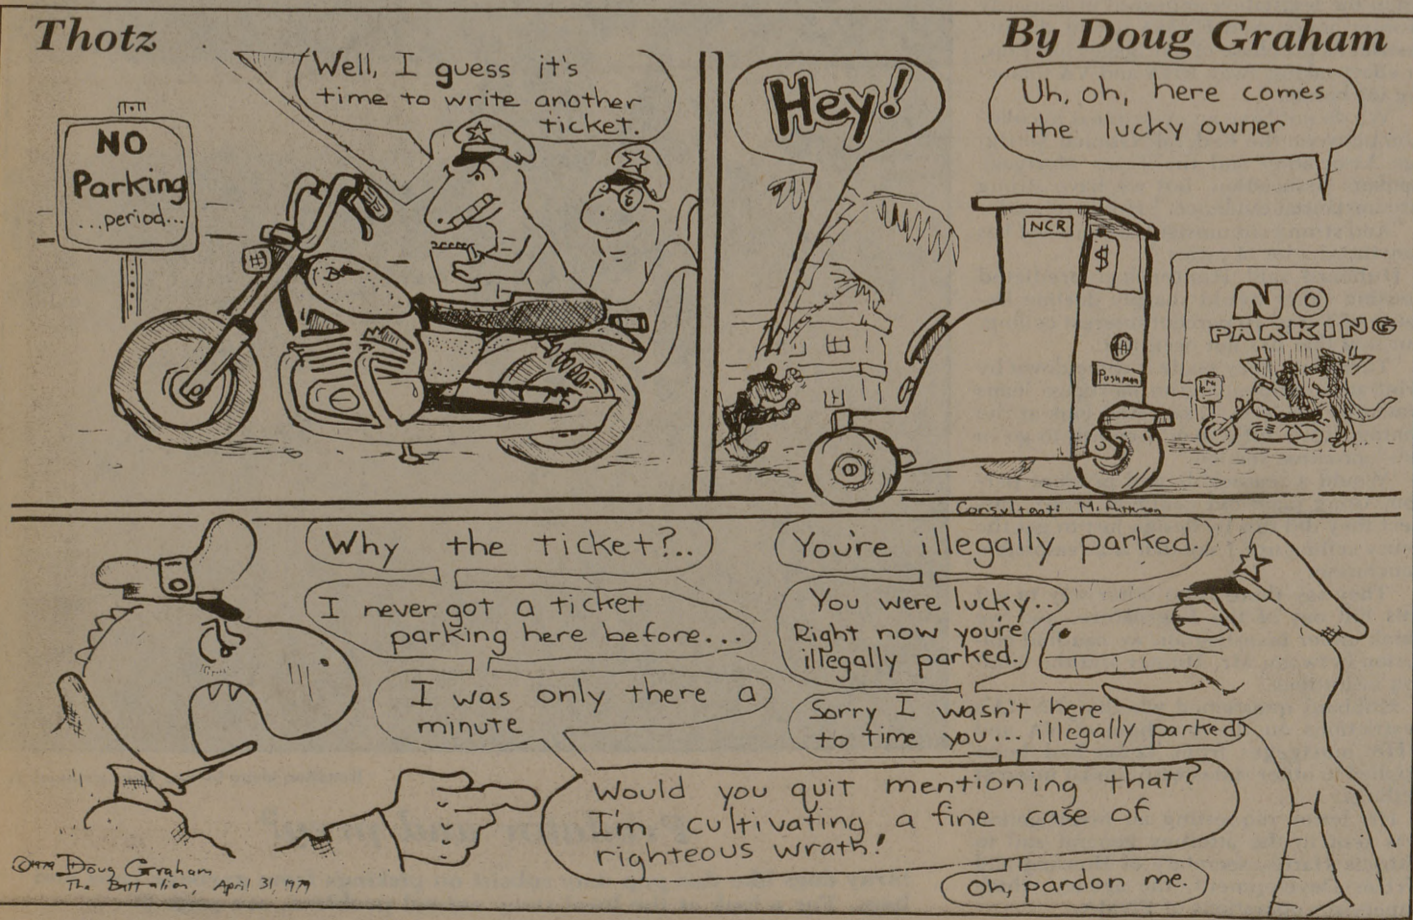 Thotz
By Doug Graham
NO
Parking
...period...
Well, I guess it's
time to write another
ticket.
Hey!
Uh, oh, here comes
the lucky owner
NCR
$
Pushman
NO
PARKING
Consultant: M.
Why the ticket?..
You're illegally parked.
I never got a ticket
parking here before...
You were lucky..
Right now you're
illegally parked.
I was only there a
minute
Sorry I wasn't here
to time you... illegally parked
Would you quit mentioning that?
I'm cultivating a fine case of
righteous wrath!
Oh, pardon me.
©1979 Doug Graham
The Battalion, April 31, 1979